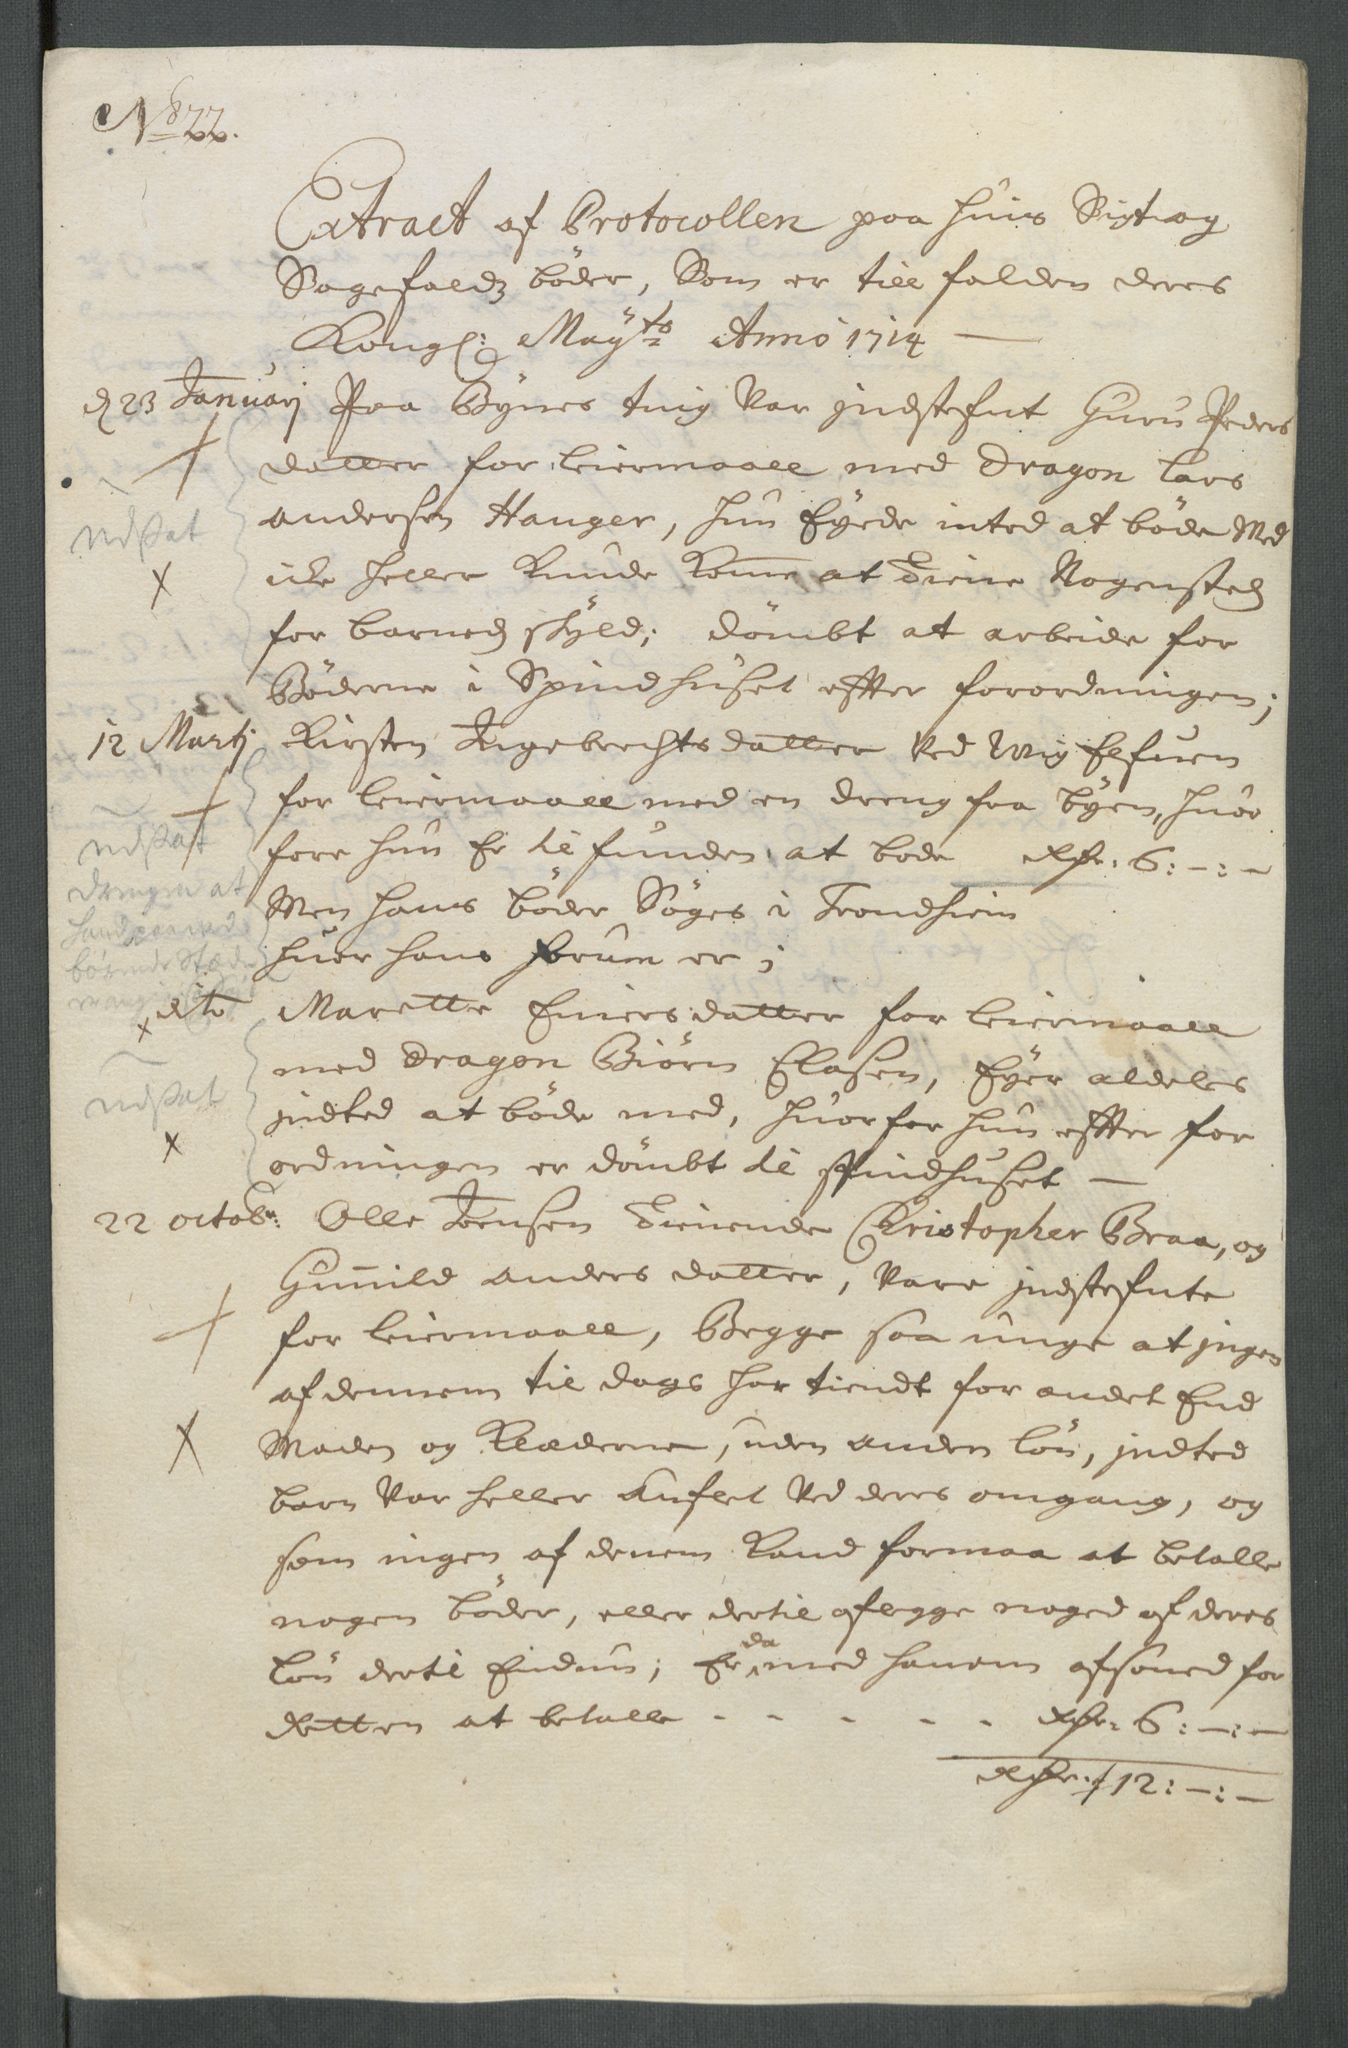 No 22.
Extract af Protocollen paa huis Sigt og
Sagefaldz böder, Som er till falden deres
Kongl: Mayts Anno 1714
d 23 Januarj Paa Bynes ting Var jndstefnt Guru Peders
datter for leiermaall med Dragon Lars
Andersen Hanger, hun Eyede inted at böde Med
icke heller kunde komme at tiene Nogensted
for barned skyld; dömbt at arbeide for
Böderne i Spindhuset effter forordningen;
12 Martj Kirsten Ingebrechtsdatter Ved Wig Elfuen
for leiermaall med en dreng fra byen, huor
fore hun Er til funden at bode Rdr: 6:-:-
Men hans böder Söges i Trondhiem
huor hans forum er;
dito Marette Einersdatter for leiermaall
med Dragon Biörn Elasen, Eyer aldeles
jndted at böde med, huorfor hun effter for
ordningen er dömbt til spindhuset
22 octobr: Olle Jensen tienende Christopher Braa, og
Gunild Andersdatter, Vare jndstefnte
for leiermaall, Begge saa unge at jngen
af dennem til dags har tiendt for andet End
Maden og Klæderne, uden anden lön, jndted
barn Var heller auflet Ved deres omgang, og
som ingen af denem kand formaa at betalle
nogen böder, eller dertil aflegge noged af deres
lön dertil Endnu; Er da med hanem afsoned for
Retten at betalle - - - - - Rdr: 6:-:-
Rdr: 12:-:-